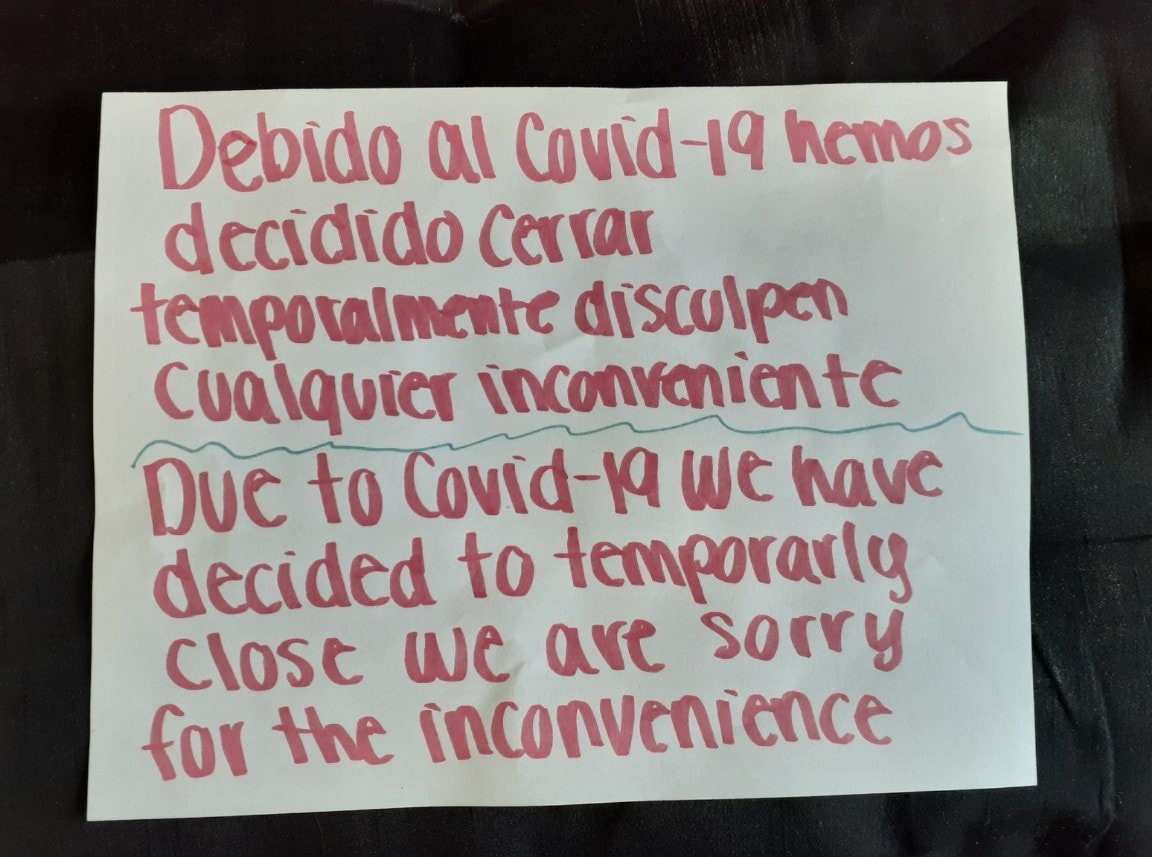 Debido al Covid-19 hemos
decidido cerrar
temporalmente disculpen
cualquier inconveniente
Due to Covid-19 we have
decided to temporarly
close we are sorry
for the inconvenience